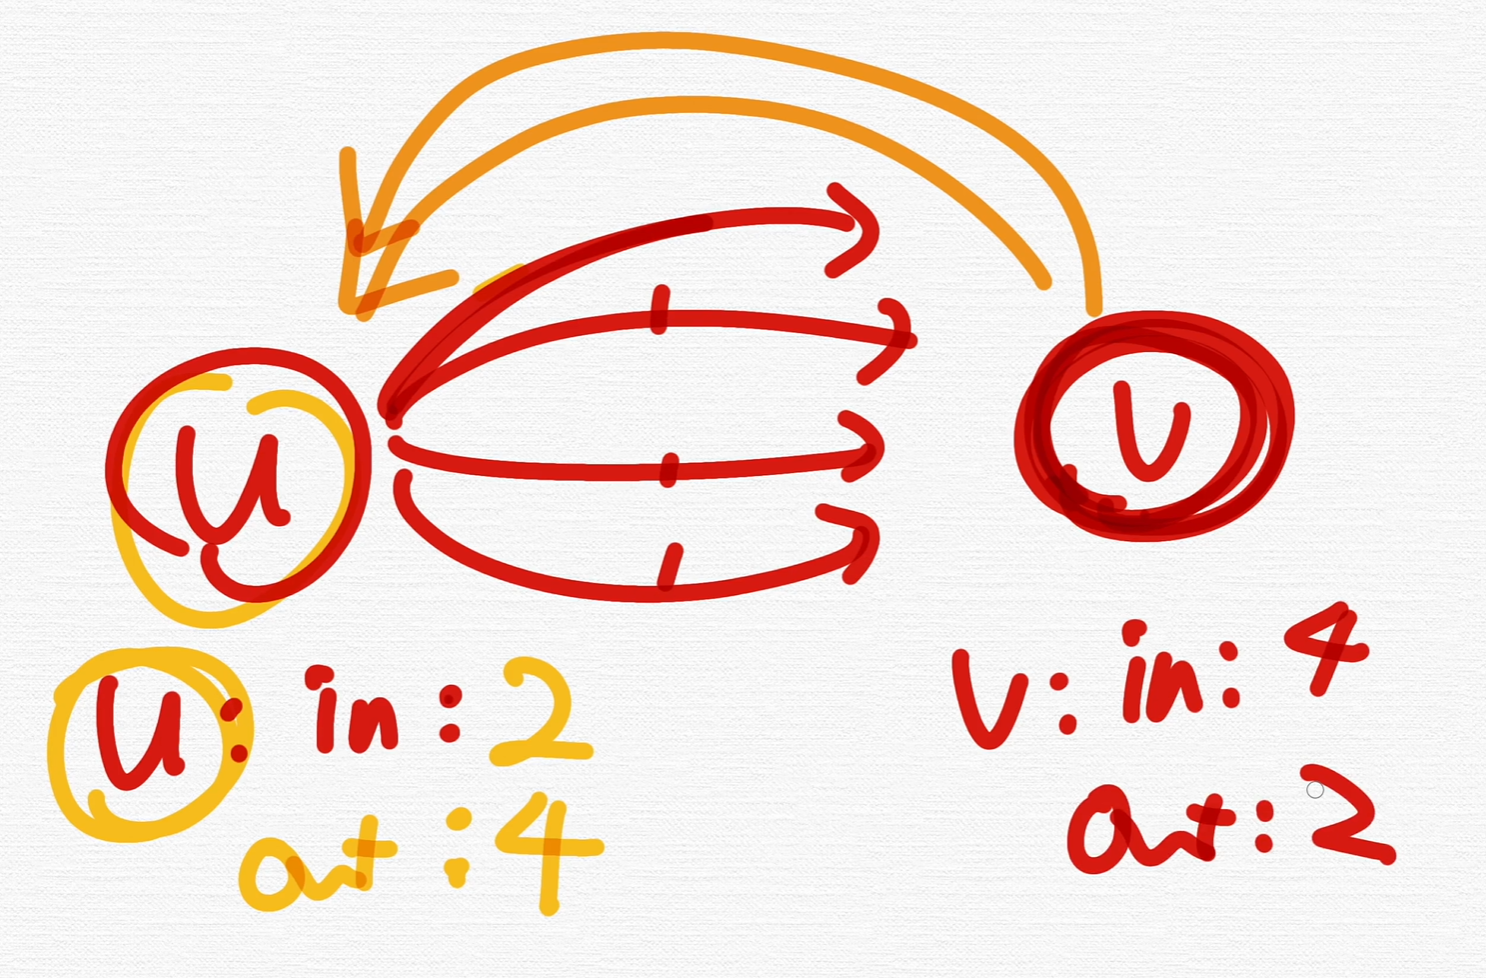 u
v
u: in: 2
out: 4
v: in: 4
out: 2